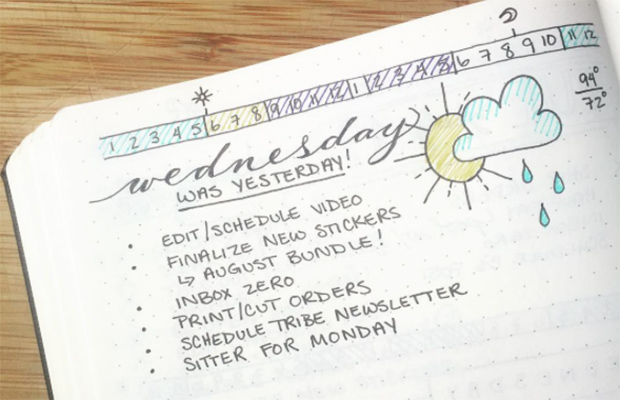 1 2 3 4 5 6 7 8 9 10 11 12 1 2 3 4 5 6 7 8 9 10 11 12
94°
72°
wednesday
WAS YESTERDAY!
• EDIT/SCHEDULE VIDEO
• FINALIZE NEW STICKERS
↳ AUGUST BUNDLE!
• INBOX ZERO
• PRINT/CUT ORDERS
• SCHEDULE TRIBE NEWSLETTER
• SITTER FOR MONDAY